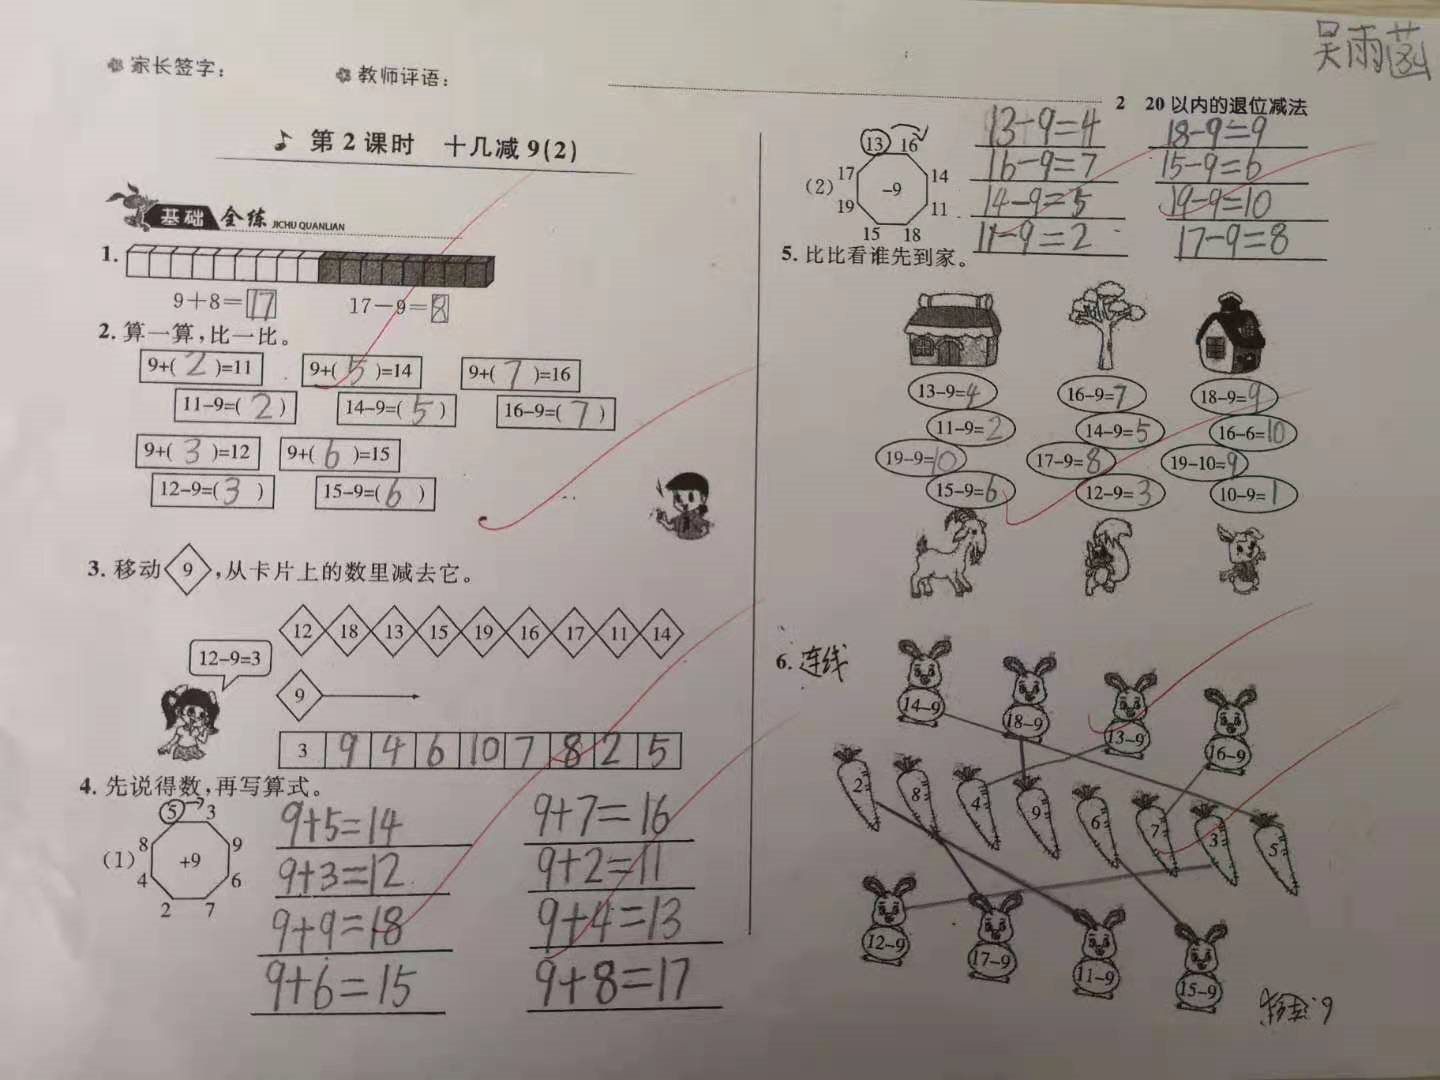 吴雨菡
家长签字：
教师评语：
2 20以内的退位减法
第2课时 十几减9(2)
基础全练 JICHU QUANLIAN
1.
9+8=17 17-9=8
2. 算一算,比一比。
9+(2)=11 9+(5)=14 9+(7)=16
11-9=(2) 14-9=(5) 16-9=(7)
9+(3)=12 9+(6)=15
12-9=(3) 15-9=(6)
3. 移动9,从卡片上的数里减去它。
12 18 13 15 19 16 17 11 14
12-9=3
9
3 9 4 6 10 7 8 2 5
4. 先说得数,再写算式。
(1) +9
5 3 9 6 7 2 4 8
9+5=14 9+7=16
9+3=12 9+2=11
9+9=18 9+4=13
9+6=15 9+8=17
(2) -9
13 16 14 11 18 15 19 17
13-9=4 18-9=9
16-9=7 15-9=6
14-9=5 19-9=10
11-9=2 17-9=8
5. 比比看谁先到家。
13-9=4 16-9=7 18-9=9
11-9=2 14-9=5 16-6=10
19-9=10 17-9=8 19-10=9
15-9=6 12-9=3 10-9=1
6. 连线
14-9 18-9 13-9 16-9
2 8 4 9 6 7 3 5
12-9 17-9 11-9 15-9